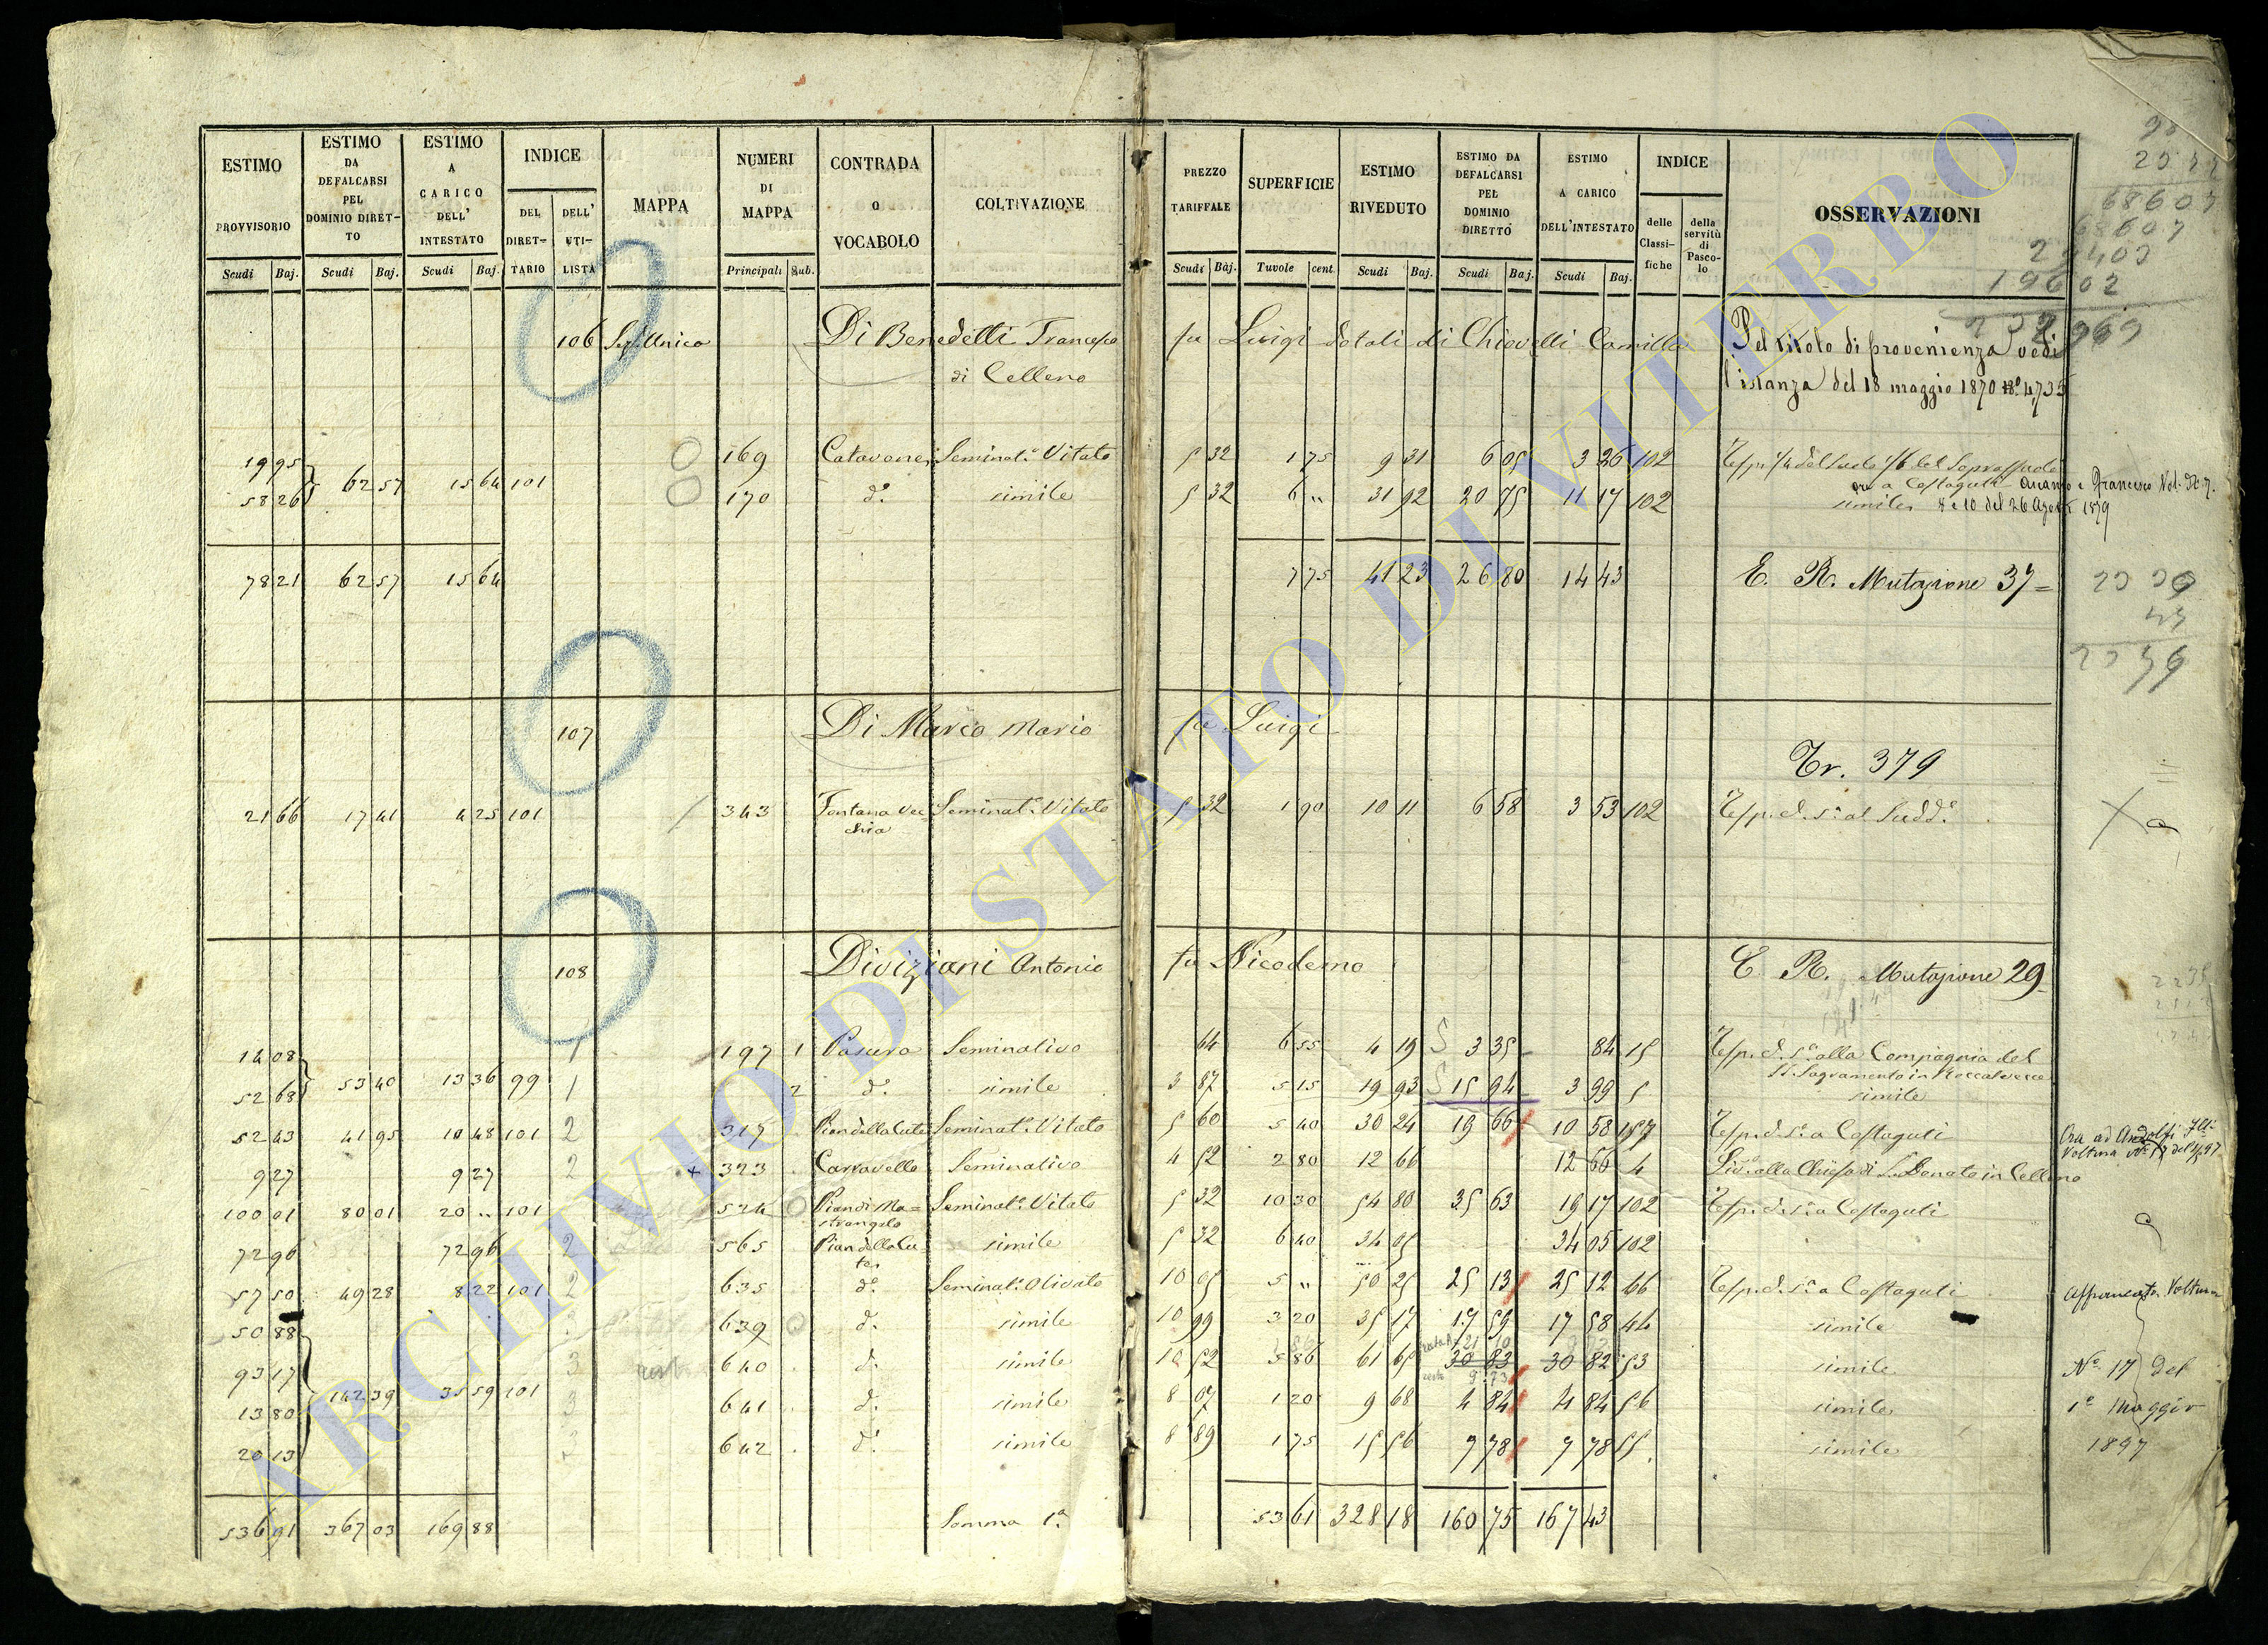 ESTIMO PROVVISORIO Scudi Baj.
ESTIMO DA DEFALCARSI PEL DOMINIO DIRETTO Scudi Baj.
ESTIMO A CARICO DELL' INTESTATO Scudi Baj.
INDICE DEL DIRETTARIO DELL' UTILISTA
MAPPA
NUMERI DI MAPPA Principali Sub.
CONTRADA O VOCABOLO
COLTIVAZIONE
PREZZO TARIFFALE Scudi Baj.
SUPERFICIE Tavole cent
ESTIMO RIVEDUTO Scudi Baj.
ESTIMO DA DEFALCARSI PEL DOMINIO DIRETTO Scudi Baj.
ESTIMO A CARICO DELL'INTESTATO Scudi Baj.
INDICE delle Classifiche della servitù di Pascolo
OSSERVAZIONI
106 Sez. Unica Di Benedetti Francesco fu Luigi dotali di Chiovelli Camilla Pel titolo di provenienza vedi
di Celleno l'istanza del 18 maggio 1870 n° 4735
19 95 169 Seminat.° Vitato 5 32 1 75 9 31 6 05 3 26 102
62 57 15 64 101
58 26 170 d° simile 5 32 6 " 31 92 20 75 11 17 102 simile 8 e 10 del 26 Agosto 1879
78 21 62 57 15 64 7 75 41 23 26 80 14 43 E. R. Mutazione 37
107 Di Marco Mario fu Luigi
Tr. 379
21 66 17 41 4 25 101 343 Fontana Vecchia Seminat.° Vitato 5 32 1 90 10 11 6 58 3 53 102
108 Diviziani Antonio fu Nicodemo E. R. Mutazione 29
14 08 1 197 1 Pasuro Seminativo 64 6 55 4 19 3 35 84 15 Resp. d. s.a alla Compagnia del
SS. Sagramento in Roccalvecce
53 40 13 36 99
52 68 1 2 d° simile 3 87 5 15 19 93 15 94 3 99 5 simile
52 43 41 95 10 48 101 2 317 Seminat.° Vitato 5 60 5 40 30 24 19 66 10 58 157 a Costaguti
9 27 9 27 2 323 Carravello Seminativo 4 52 2 80 12 66 12 66 4 alla Chiesa di S. Donato in Celleno
100 01 80 01 20 " 101 524 Pian di Mastrangelo Seminat.° Vitato 5 32 10 30 54 80 35 63 19 17 102 a Costaguti
72 96 72 96 2 565 simile 5 32 6 40 34 05 34 05 102
57 50 49 28 8 22 101 2 635 d° Seminat.° Olivato 10 05 5 " 50 25 25 13 25 12 66 a Costaguti
50 88 639 d. simile 10 99 3 20 35 17 17 59 17 58 44 simile
93 17 3 640 d. simile 10 52 5 86 61 65 30 83 30 82 53 simile N° 17 del
142 39 35 59 101
13 80 3 641 d. simile 8 07 1 20 9 68 4 84 4 84 56 simile 1° Maggio
20 13 642 d. simile 8 89 1 75 15 56 7 78 7 78 55 simile 1897
536 91 367 03 169 88 Somma 1.a 53 61 328 18 160 75 167 43
ARCHIVIO DI STATO DI VITERBO